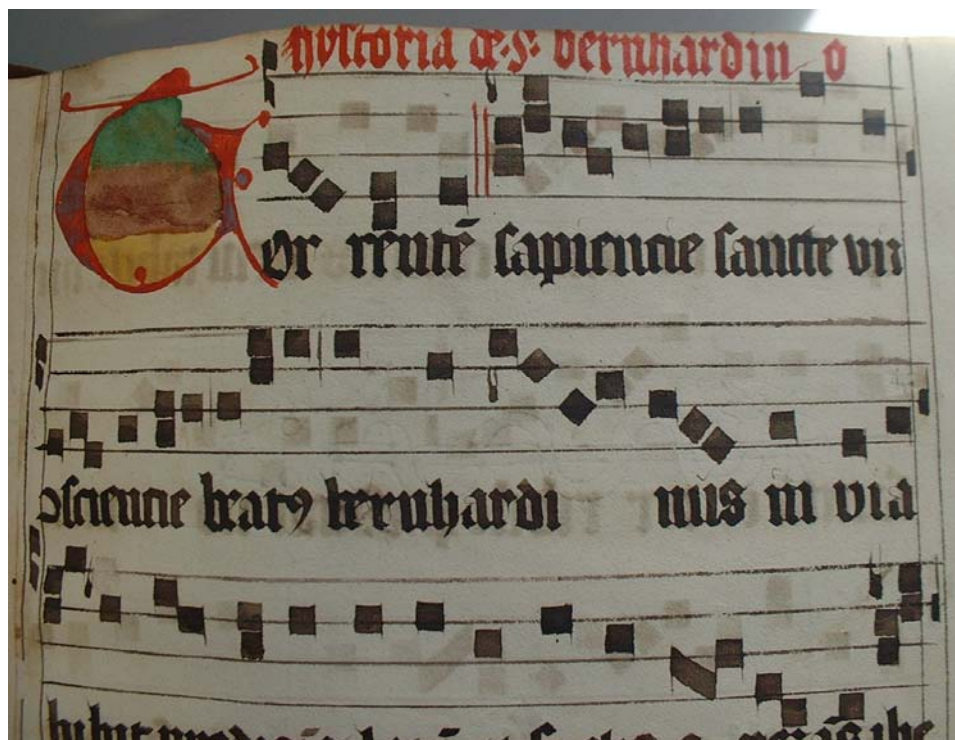 hystoria de .s. bernhardin o
Tor rentē sapiencie sancte
ↄsciencie beatꝰ bernhardi nus in via
bibit